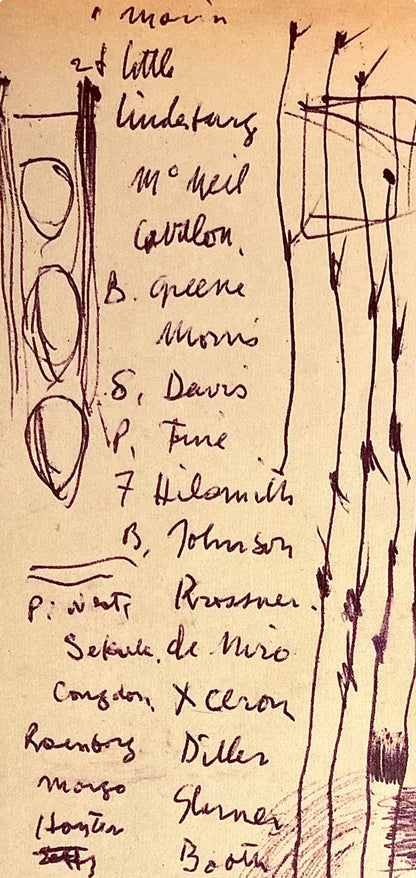 Marin
Little
Lindeburg
McNeil
Cavallon.
B. Greene
Morris
S. Davis
P. Fine
F Hilsmith
B. Johnson
Rrossner.
Sekula. de Niro
Congdon, X ceron
Rosenborg Diller
Margo Sterner
Booth